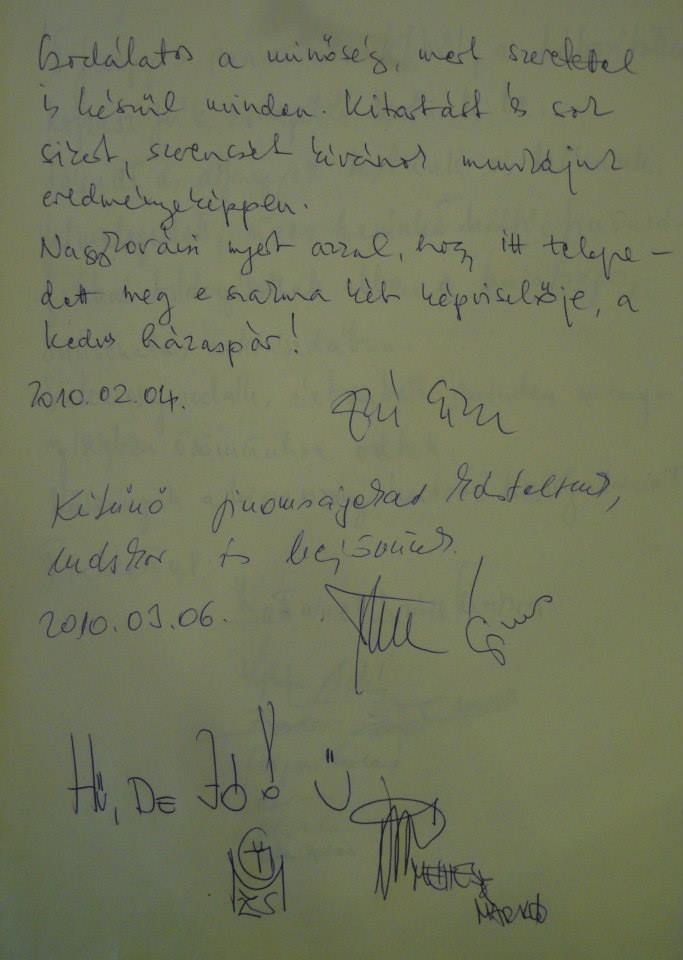 Csodálatos a minőség, mert szeretettel
is készül minden. Kitartást és sok
sikert, szerencsét kívánok munkájuk
eredményeképpen.
Nagykovácsi nyert azzal, hogy itt telepe-
dett meg e szakma két képviselője, a
kedves házaspár!
2010.02.04.
Kitűnő finomságokat kóstoltunk,
máskor is bejövünk.
2010.03.06.
Hű, DE JÓ! Ü
ZS
MÁRKÓ